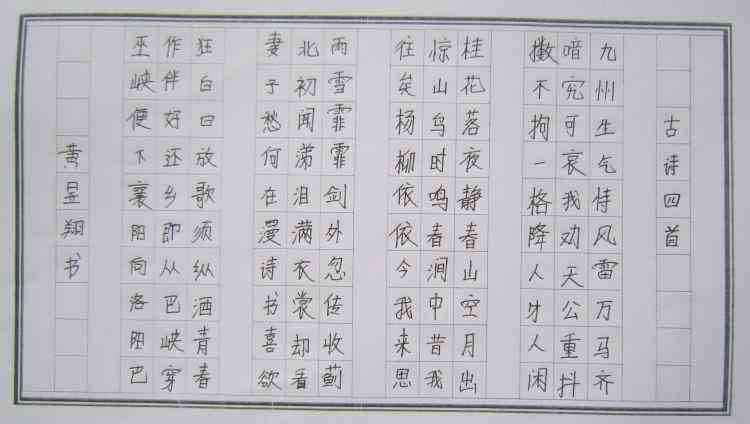 古诗四首
九州生气恃风雷万马齐
暗究可哀我劝天公重抖
擞不拘一格降人才人闲
桂花落夜静春山空月出
惊山鸟时鸣春涧中昔我
往矣杨柳依依今我来思
雨雪霏霏剑外忽传收蓟
北初闻涕泪满衣裳却看
妻子愁何在漫诗书喜欲
狂白日放歌须纵洒青春
作伴好还乡即从巴峡穿
巫峡便下襄阳向洛阳巴
黄昱翔书